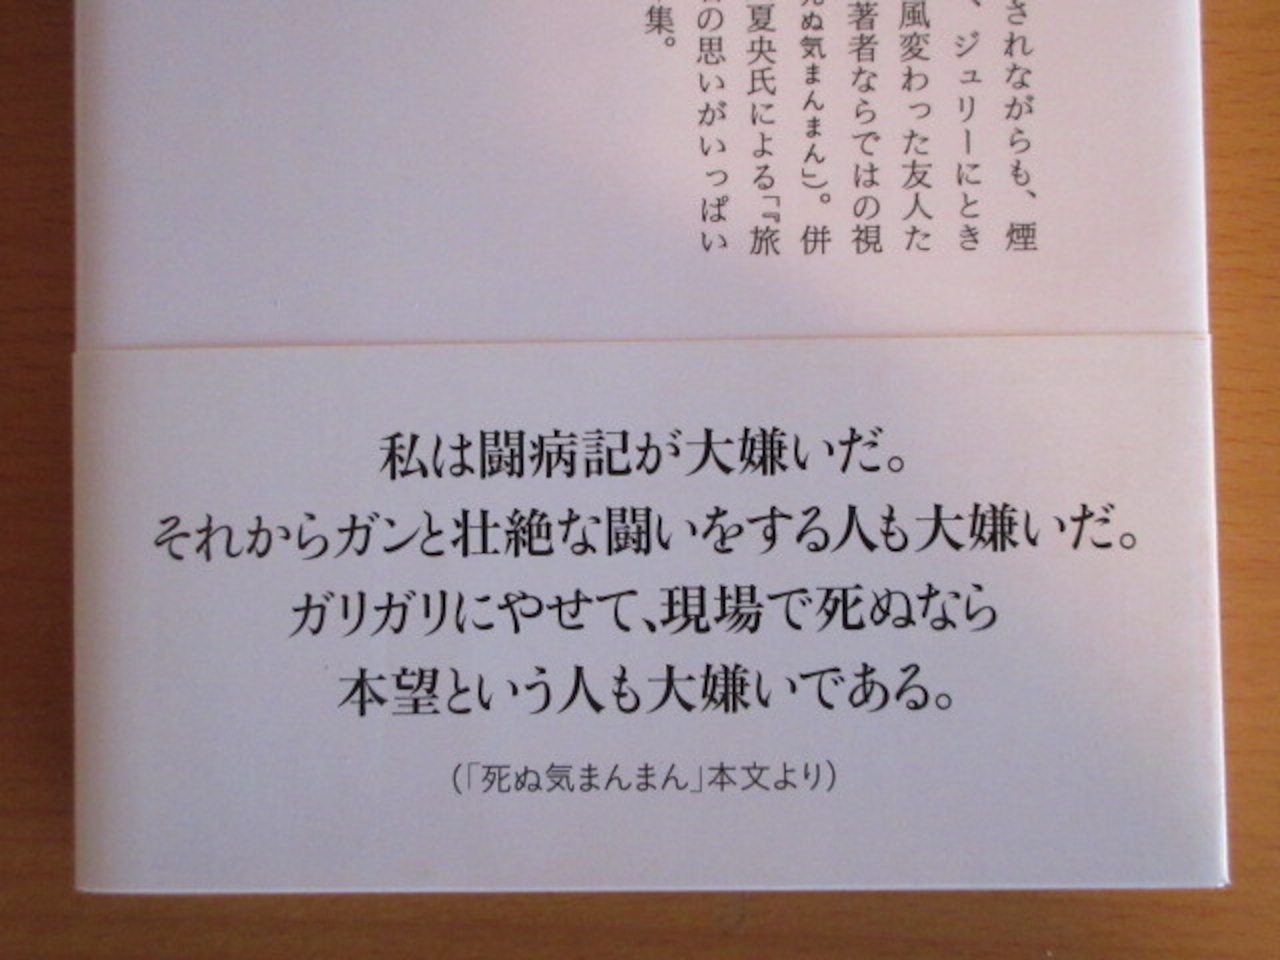 されながらも、煙
、ジュリーにとき
風変わった友人た
著者ならではの視
ぬ気まんまん」)。併
夏央氏による「『旅
の思いがいっぱい
集。
私は闘病記が大嫌いだ。
それからガンと壮絶な闘いをする人も大嫌いだ。
ガリガリにやせて、現場で死ぬなら
本望という人も大嫌いである。
(「死ぬ気まんまん」本文より)